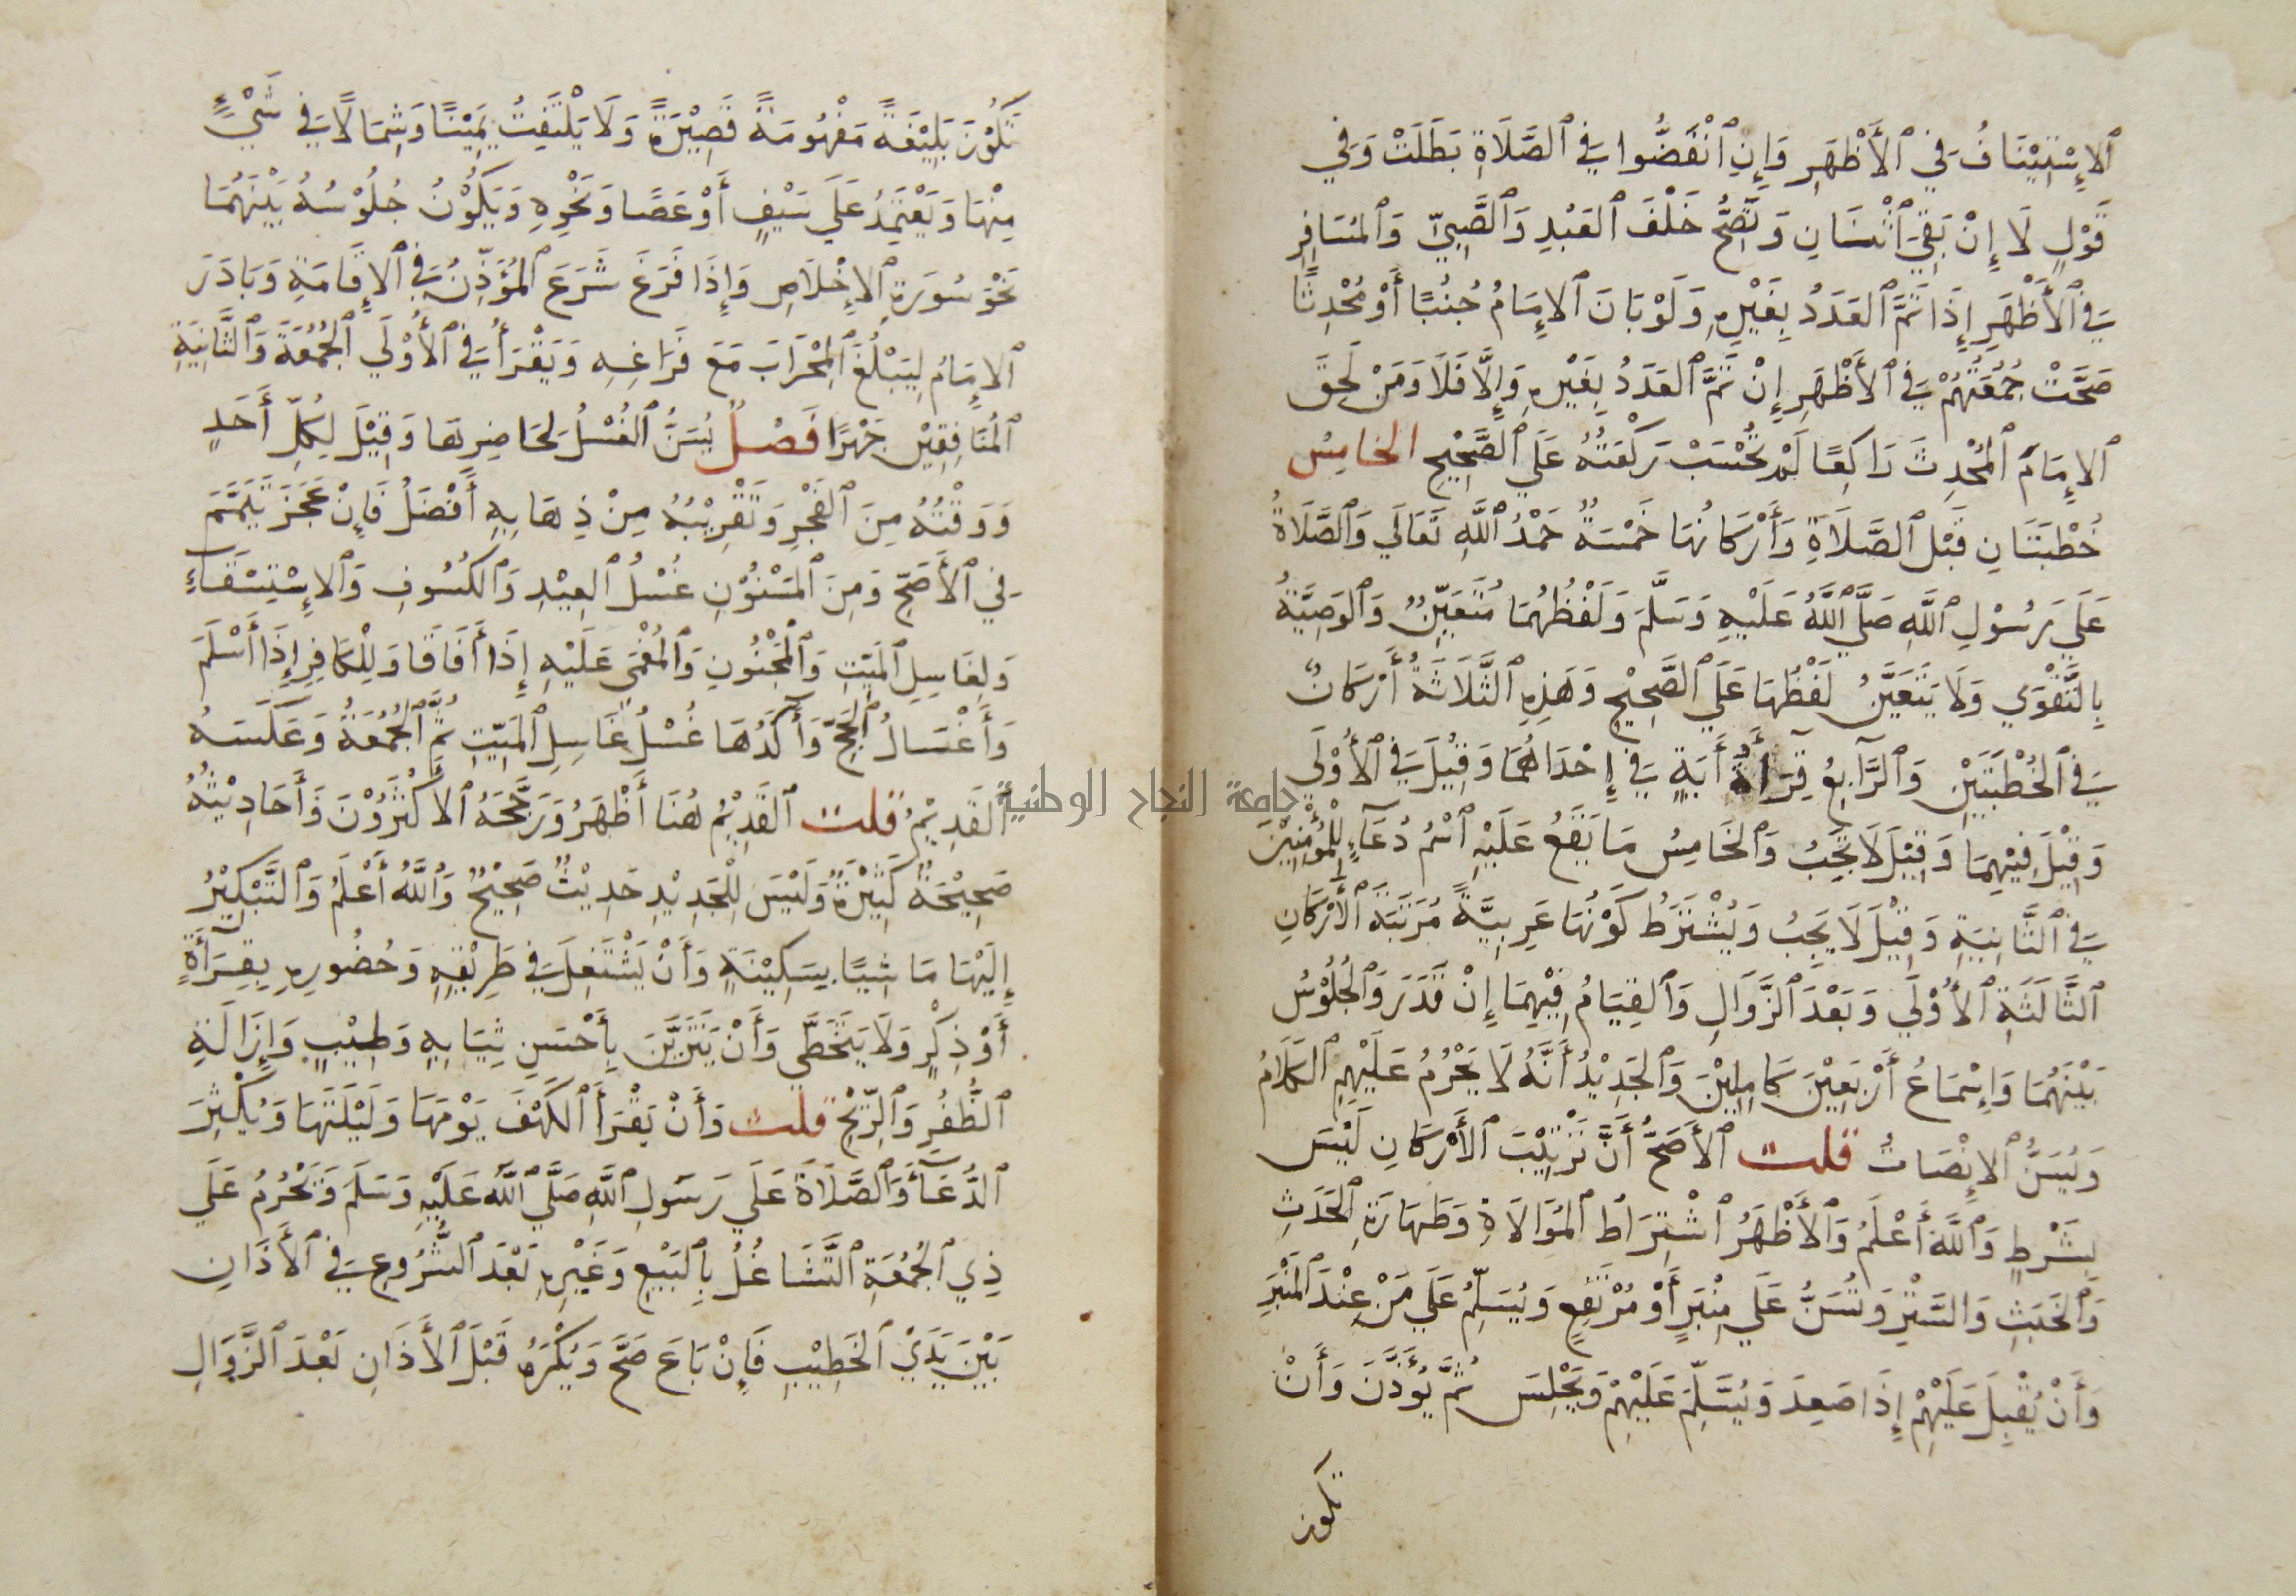 الإِسْتِيْنَافُ فِي الأَظْهَرِ وَإِنِ انْفَضُّوا فِي الصَّلَاةِ بَطَلَتْ وَفِي
قَوْلٍ لَا إِنْ بَقِيَ اثْنَانِ وَتَصِحُّ خَلْفَ العَبْدِ وَالصَّبِيِّ وَالمُسَافِرِ
فِي الأَظْهَرِ إِذَا تَمَّ العَدَدُ بِغَيْرِهِ وَلَوْ بَانَ الإِمَامُ جُنُبًا أَوْ مُحْدِثًا
صَحَّتْ جُمُعَتُهُمْ فِي الأَظْهَرِ إِنْ تَمَّ العَدَدُ بِغَيْرِهِ وَإِلَّا فَلَا وَمَنْ لَحِقَ
الإِمَامَ المُحْدِثَ رَاكِعًا لَمْ تُحْسَبْ رَكْعَتُهُ عَلَي الصَّحِيْحِ الخامِسُ
خُطْبَتَانِ قَبْلَ الصَّلَاةِ وَأَرْكَانُهَا خَمْسَةٌ حَمْدُ اللَّهِ تَعَالَي وَالصَّلَاةُ
عَلَي رَسُوْلِ اللَّهِ صَلَّي اللَّهُ عَلَيْهِ وَسَلَّمَ وَلَفْظُهُمَا مُتَعَيِّنٌ وَالوَصِيَّةُ
بِالتَّقْوَي وَلَا يَتَعَيَّنُ لَفْظُهَا عَلَي الصَّحِيْحِ وَهَذِهِ الثَّلَاثَةُ أَرْكَانٌ
فِي الخُطْبَتَيْنِ وَالرَّابِعُ قِرَآءَةُ أَيَةٍ فِي إِحْدَاهُمَا وَقِيْلَ فِي الأُوْلَي
وَقِيْلَ فِيْهِمَا وَقِيْلَ لَا تَجِبُ وَالخَامِسُ مَا يَقَعُ عَلَيْهِ اسْمُ دُعَآءٍ لِلْمُؤْمِنِيْنَ
فِي الثَّانِيَةِ وَقِيْلَ لَا يَجِبُ وَيُشْتَرَطُ كَوْنُهَا عَرِبِيَّةً مُرَتَّبَةَ الأَرْكَانِ
الثَّالَثَةِ الأُوْلَي وَبَعْدَ الزَّوَالِ وَالقِيَامُ فِيْهِمَا إِنْ قَدَرَ وَالجُلُوْسُ
بَيْنَهُمَا وَإِسْمَاعُ أَرْبَعِيْنَ كَامِلِيْنَ وَالجَدِيْدُ أَنَّهُ لَا يَحْرُمُ عَلَيْهِمِ الكَلَامُ
وَيُسَنُّ الإِنْصَاتُ قلت الأَصَحُّ أَنَّ تَرْتِيْبَ الأَرْكَانِ لَيْسَ
بِشَرْطٍ وَاللَّهُ أَعْلَمُ وَالأَظْهَرُ اشْتِرَاطُ المُوَالَاةِ وَطَهَارَةِ الحَدَثِ
وَالخَبَثِ وَالسَّتْرِ وَتُسَنُّ عَلَي مِنْبَرٍ أَوْ مُرْتَفِعٍ وَيُسَلِّمُ عَلَي مَنْ عِنْدَ المَنْبَرِ
وَأَنْ يُقْبِلَ عَلَيْهِمْ إِذَا صَعِدَ وَيُسَلِّمَ عَلَيْهِمْ وَيَجْلِسَ ثُمَّ يُؤَذَّنَ وَأَنْ
تكون
تَكُوْنَ بَلِيْغَةً مَفْهُومَةً قَصِيْرَةً وَلَا يَلْتَفِتُ يَمِيْنًا وَشِمَالًا فِي شَيْءٍ
مِنْهَا وَيَعْتَمِدُ عَلَي سَيْفٍ أَوْ عَصًا وَنَحْوِهِ وَيَكُوْنُ جُلُوْسُهُ بَيْنَهُمَا
نَحْوَ سُورَةِ الإِخْلَاصِ وَإِذَا فَرَغَ شَرَعَ المُؤَذِّنُ فِي الإِقَامَةِ وَبَادَرَ
الإِمَامُ لِيَبْلُغَ المِحْرَابَ مَعَ فَرَاغِهِ وَيَقْرَأُ فِي الأُوْلَي الجُمُعَةَ وَالثَّانِيَةِ
المُنَافِقِيْنَ جَهْرًا فَصْلٌ يُسَنُّ الغُسْلُ لِحَاضِرِهَا وَقِيْلَ لِكُلِّ أَحَدٍ
وَوَقْتُهُ مِنَ الفَجْرِ وَتَقْرِيْبُهُ مِنْ ذِهَابِهِ أَفْضَلُ فَإِنْ عَجَزَ تَيَمَّمَ
فِي الأَصَحِّ وَمِنَ المَسْنُوْنِ غُسْلُ العِيْدِ وَالكُسُوفِ وَالإِسْتِسْقَآءِ
وَلِغَاسِلِ المَيِّتِ وَالمَجْنُونِ وَالمُغْمَي عَلَيْهِ إِذَا أَفَاقَا وَلِلْكَافِرِ إِذَا أَسْلَمَ
وَأَغْسَالُ الحَجِّ وَآكَدُهَا غُسْلُ غَاسِلِ المَيِّتِ ثُمَّ الجُمُعَةُ وَعَكَسَهُ
القَدِيْمُ قلت القَدِيْمُ هُنَا أَظْهَرُ وَرَجَّحَهُ الأَكْثَرُوْنَ وَأَحَادِيْثُهُ
صَحِيْحَةٌ كَثِيْرَةٌ وَلَيْسَ لِلْجَدِيْدِ حَدِيْثٌ صَحِيْحٌ وَاللَّهُ أَعْلَمُ وَالتَّبْكِيْرُ
إِلَيْهَا مَاشِيًا بِسَكِيْنَةٍ وَأَنْ يَشْتَغِلَ فِي طَرِيْقِهِ وَحُضُورِهِ بِقِرَآءَةٍ
أَوْ ذِكْرٍ وَلَا يَتَخَطَّي وَأَنْ يَتَزَيَّنَ بِأَحْسَنِ ثِيَابِهِ وَطِيْبٍ وَإِزَالَةِ
الظُّفُرِ وَالرِّيْحِ قلت وَأَنْ يَقْرَأَ الكَهْفَ يَوْمَهَا وَلَيْلَتَهَا وَيُكْثِرَ
الدُّعَآءَ وَالصَّلَاةَ عَلَي رَسُولِ اللَّهِ صَلَّي اللَّهُ عَلَيْهِ وَسَلَّمَ وَتَحْرُمُ عَلَي
ذِي الجُمُعَةِ التَّشَاغُلُ بِالبَيْعِ وَغَيْرِهِ بَعْدَ الشُّرُوعِ فِي الأَذَانِ
بَيْنَ يَدَيِ الخَطِيْبِ فَإِنْ بَاعَ صَحَّ وَيُكْرَهُ قَبْلَ الأَذَانِ بَعْدَ الزَّوَالِ
جامعة النجاح الوطنية